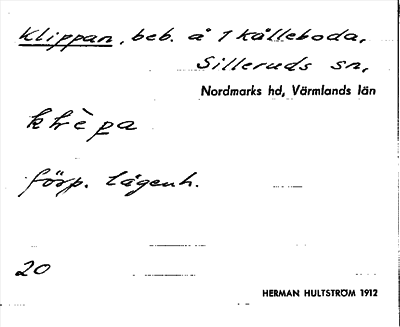 Klippan, beb. å 1 Kålleboda,
Silleruds sn,
Nordmarks hd, Värmlands län
förp. lägenh.
20
HERMAN HULTSTRÖM 1912